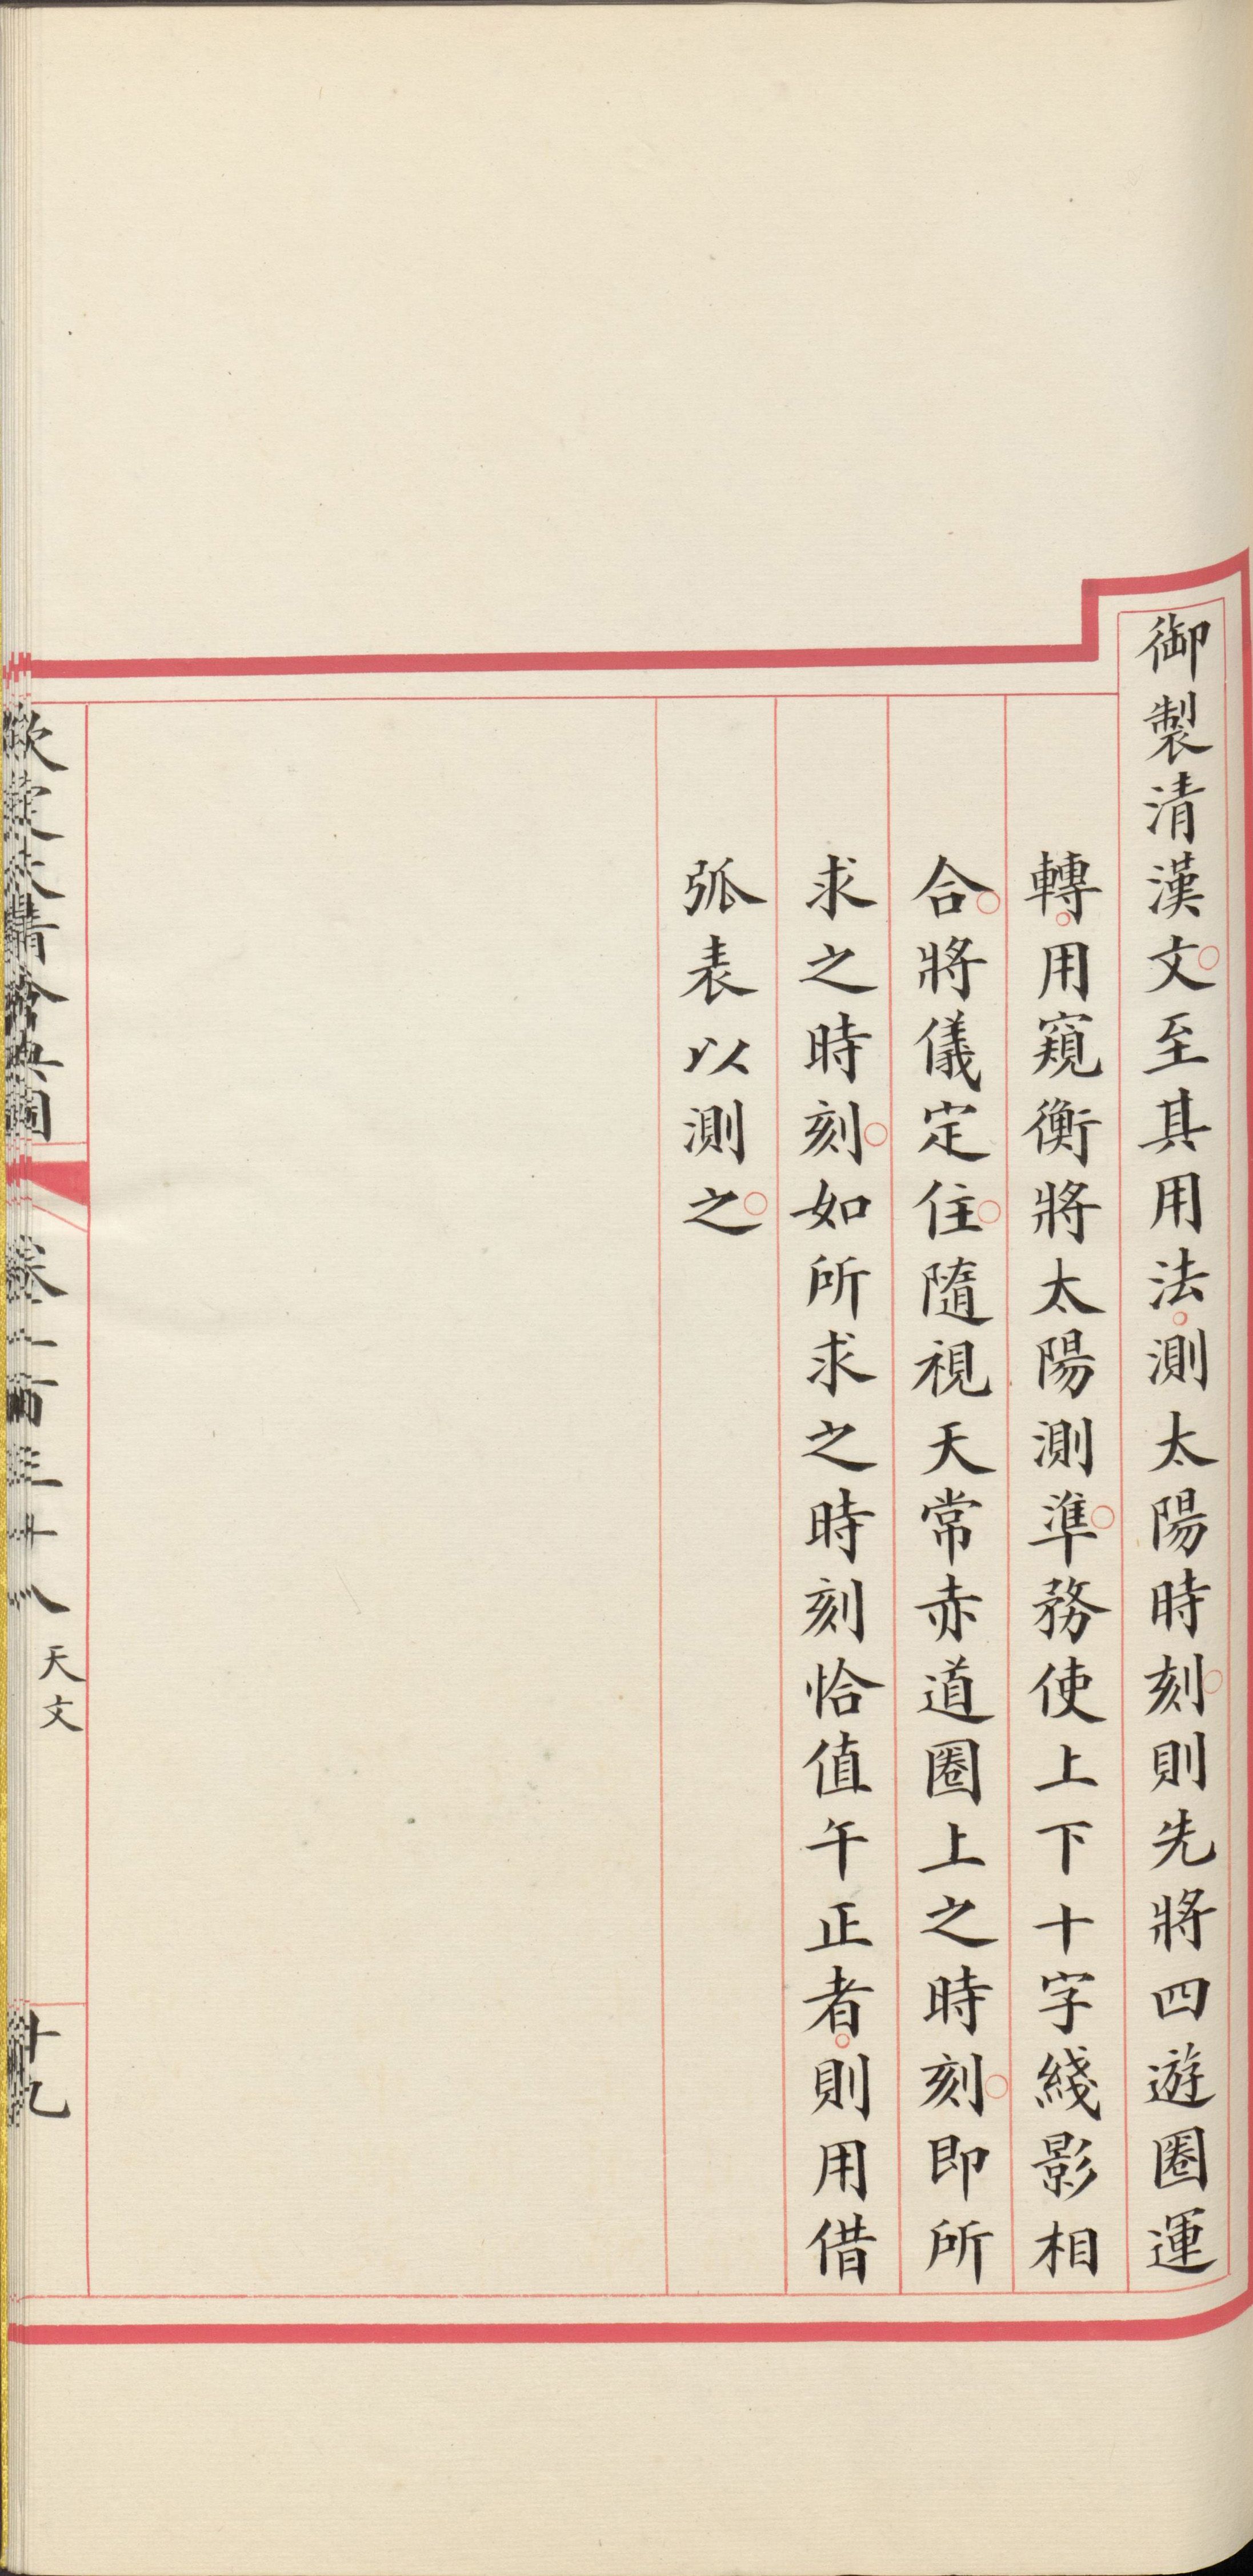 御製清漢文○至其用法○測太陽時刻○則先將四遊圈運
轉○用窺衡將太陽測準○務使上下十字綫影相
合○將儀定住○隨視天常赤道圈上之時刻○即所
求之時刻○如所求之時刻恰值午正者○則用借
弧表以測之○
欽定大清會典圖
卷一百三十八
天文
十九